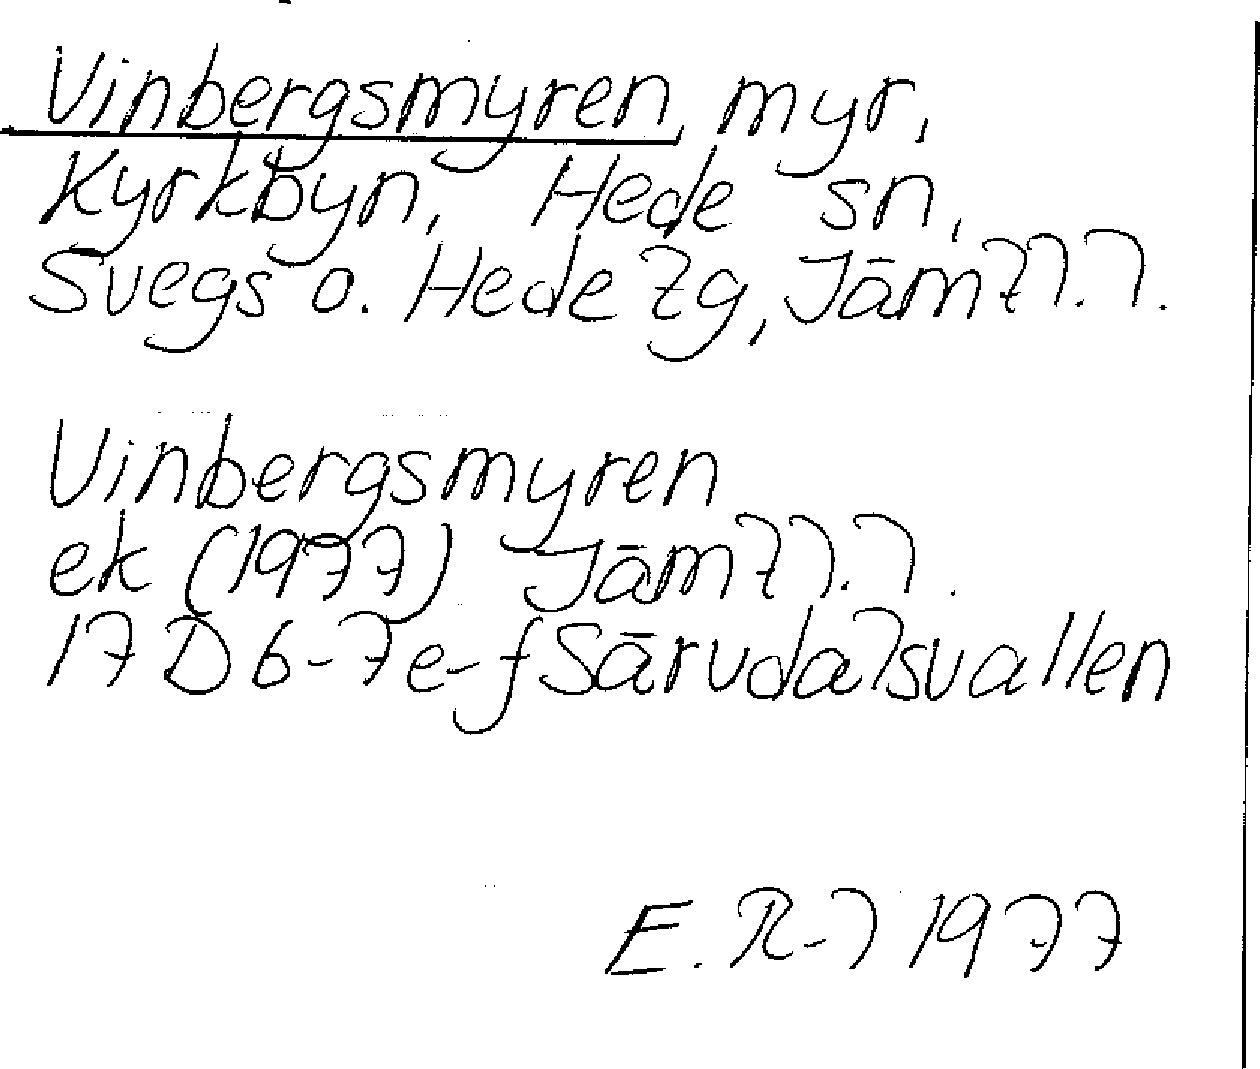 Vinbergsmyren, myr,
Kyrkbyn, Hede sn,
Svegs o. Hede tg, Jämtl.l.
Vinbergsmyren
ek (1977) Jämtl.l.
17D 6-7e-f Särvdalsvallen
E. R-l 1977